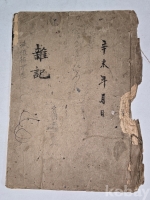 辛未年 月 日
雜記